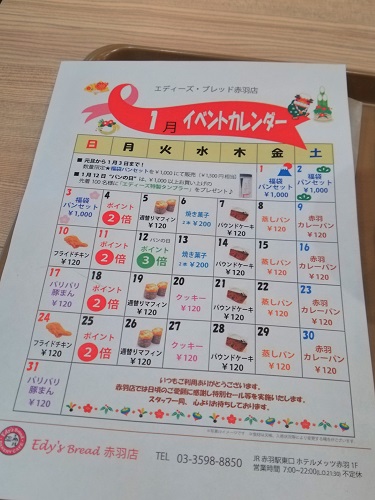 エディーズ・ブレッド赤羽店
1月 イベントカレンダー
日 月 火 水 木 金 土
■ 元旦から1月3日まで!
数量限定★福袋パンセットを¥1,000にて販売
■ 1月12日 “パンの日”は、¥1,000以上お買い上げの
先着100名様に「エディーズ特製タンブラー」をプレゼント♪
1 福袋パンセット ¥1,000
2 福袋パンセット ¥1,000
3 福袋パンセット ¥1,000
4 ポイント2倍
5 週替りマフィン ¥120
6 焼き菓子 2本 ¥200
7 パウンドケーキ ¥120
8 蒸しパン ¥120
9 赤羽カレーパン ¥120
10 フライドチキン ¥120
11 ポイント2倍
12 パンの日 ポイント3倍
13 焼き菓子 2本 ¥200
14 パウンドケーキ ¥120
15 蒸しパン ¥120
16 赤羽カレーパン ¥120
17 パリパリ豚まん ¥120
18 ポイント2倍
19 週替りマフィン ¥120
20 クッキー ¥120
21 パウンドケーキ ¥120
22 蒸しパン ¥120
23 赤羽カレーパン ¥120
24 フライドチキン ¥120
25 ポイント2倍
26 週替りマフィン ¥120
27 クッキー ¥120
28 パウンドケーキ ¥120
29 蒸しパン ¥120
30 赤羽カレーパン ¥120
31 パリパリ豚まん ¥120
いつもご利用ありがとうございます。
赤羽店では日頃のご愛顧に感謝し特別セール等を実施いたします。
スタッフ一同、心よりお待ちしております。
Edy's Bread 赤羽店
TEL 03-3598-8850
JR 赤羽駅東口 ホテルメッツ赤羽 1F
営業時間 7:00~22:00(L.O.21:30) 不定休